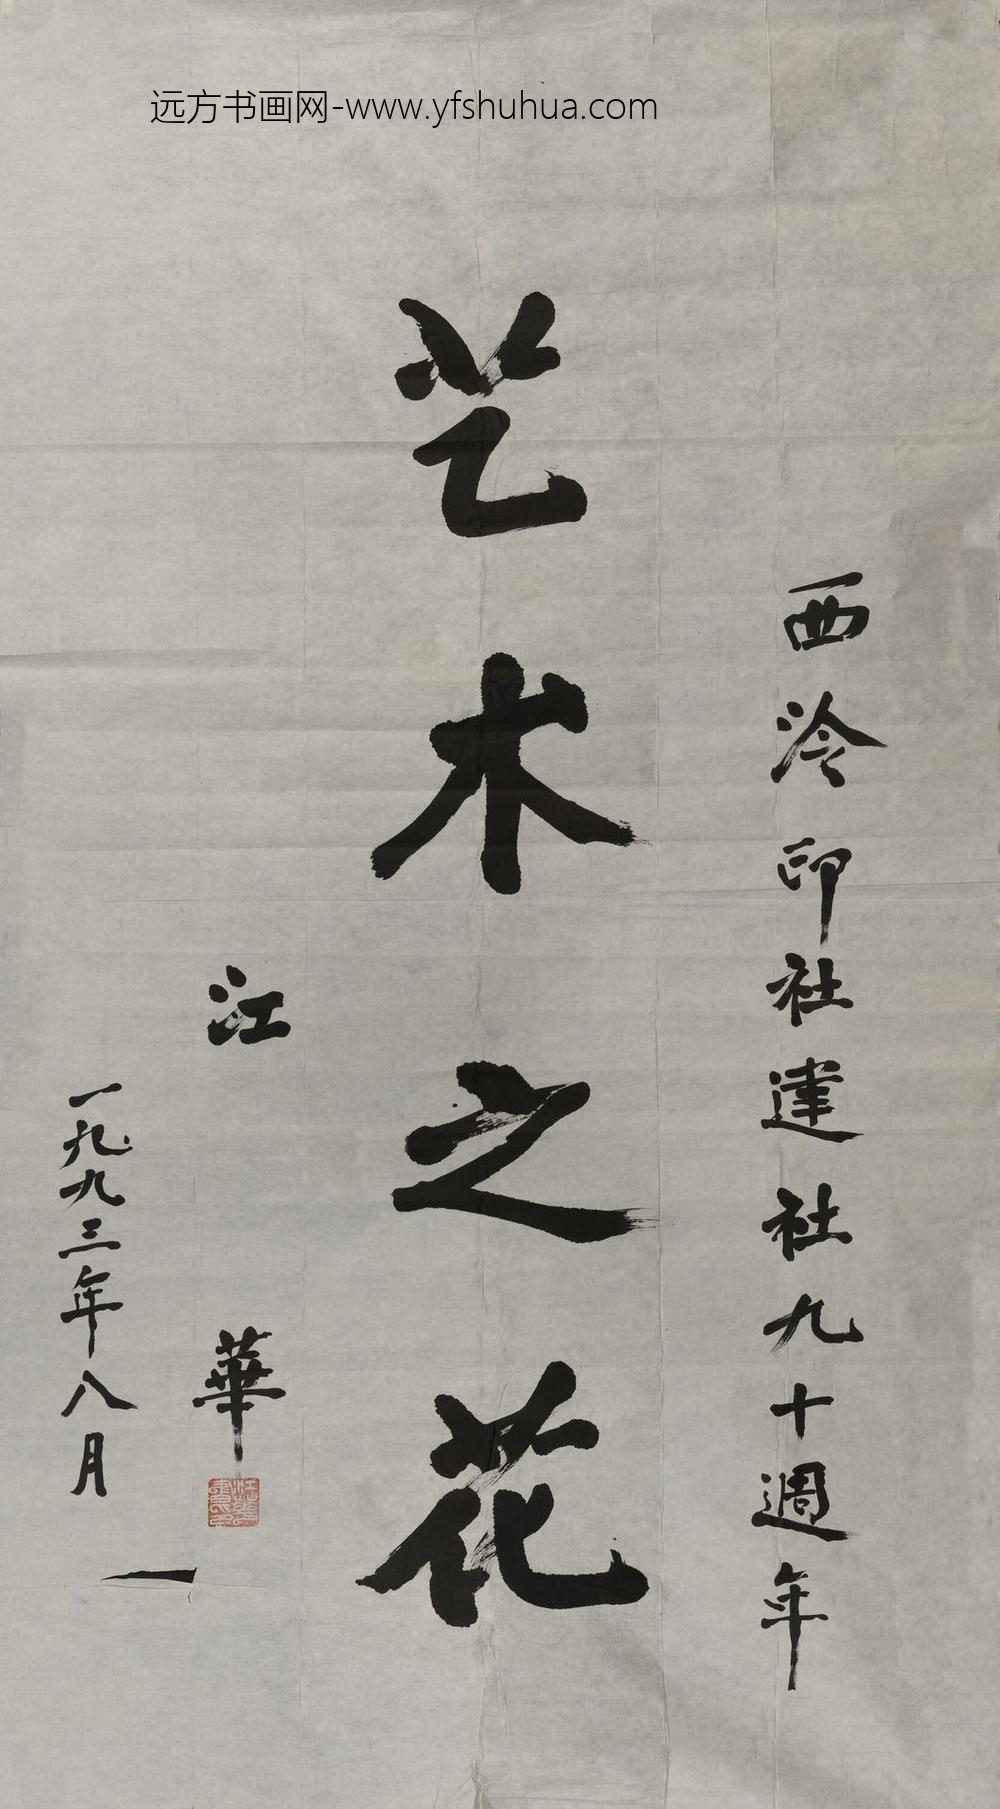 远方书画网-www.yfshuhua.com
西泠印社建社九十週年
艺术之花
江華
一九九三年八月